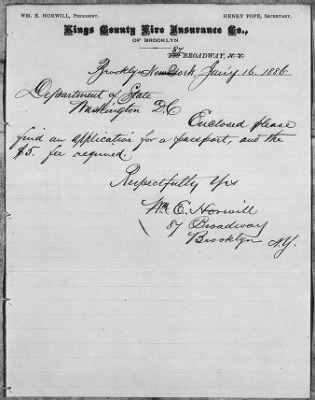 WM. E. HORWILL, PRESIDENT. HENRY POPE, SECRETARY.
Kings County Fire Insurance Co.,
OF BROOKLYN.
87
BROADWAY, N.Y.
Brooklyn New York, Jany 16. 1886
Department of State
Washington D.C
Enclosed please
find an application for a passport, and the
$5. fee required.
Respectfully Yrs
Wm E. Horwill
87 Broadway
Brooklyn N.Y.